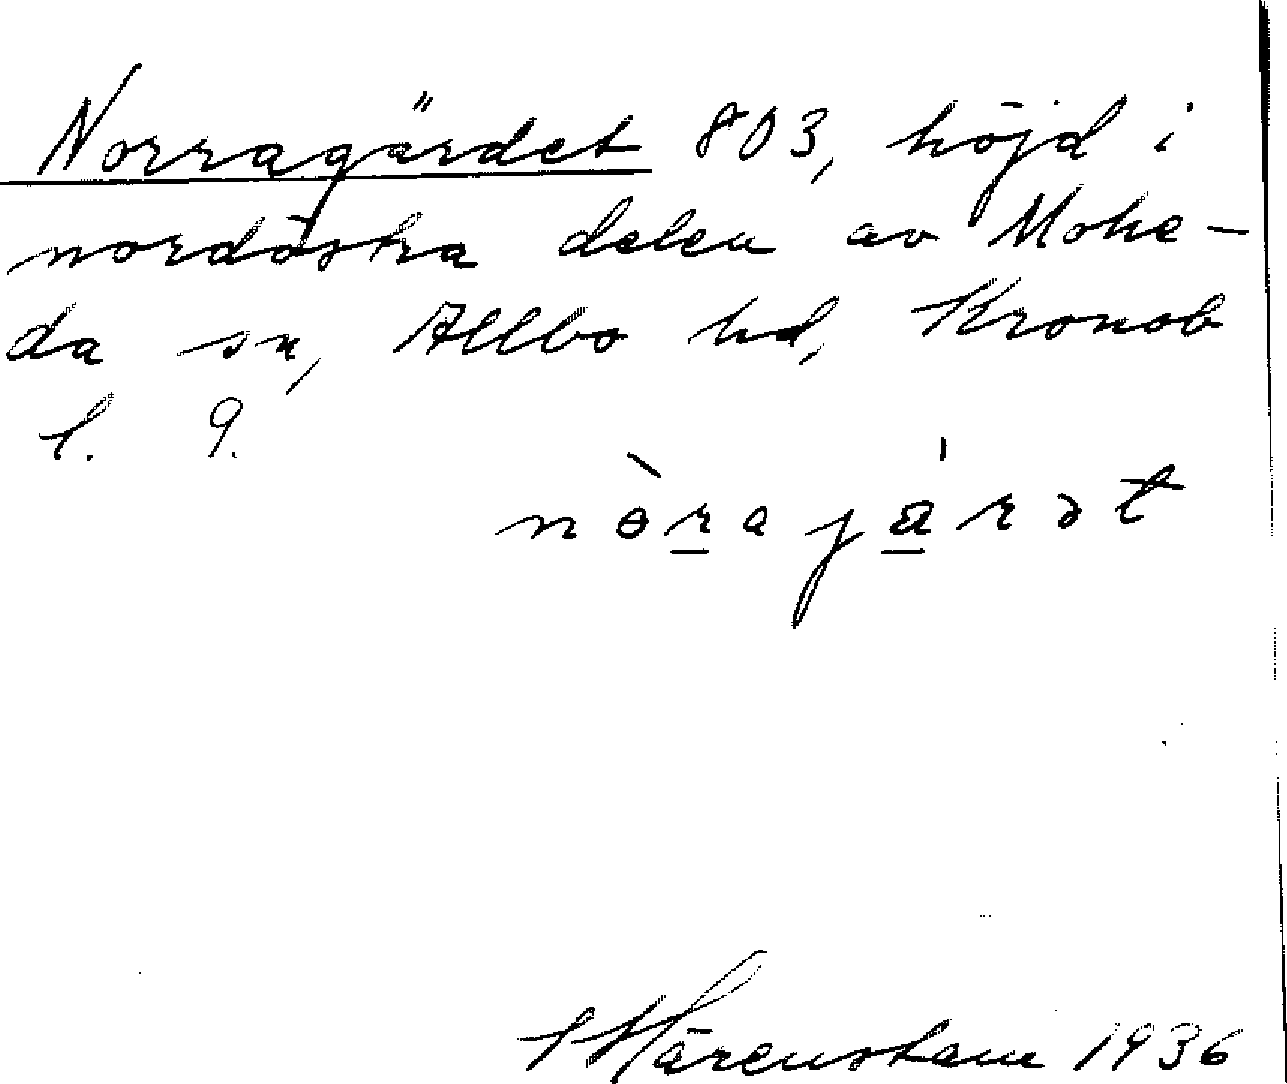 Norragärdet 803, höjd i
nordöstra delen av Mohe-
da sn, Allbo hd, Kronob
l. 9.
nòrajárət
Härenstam 1936